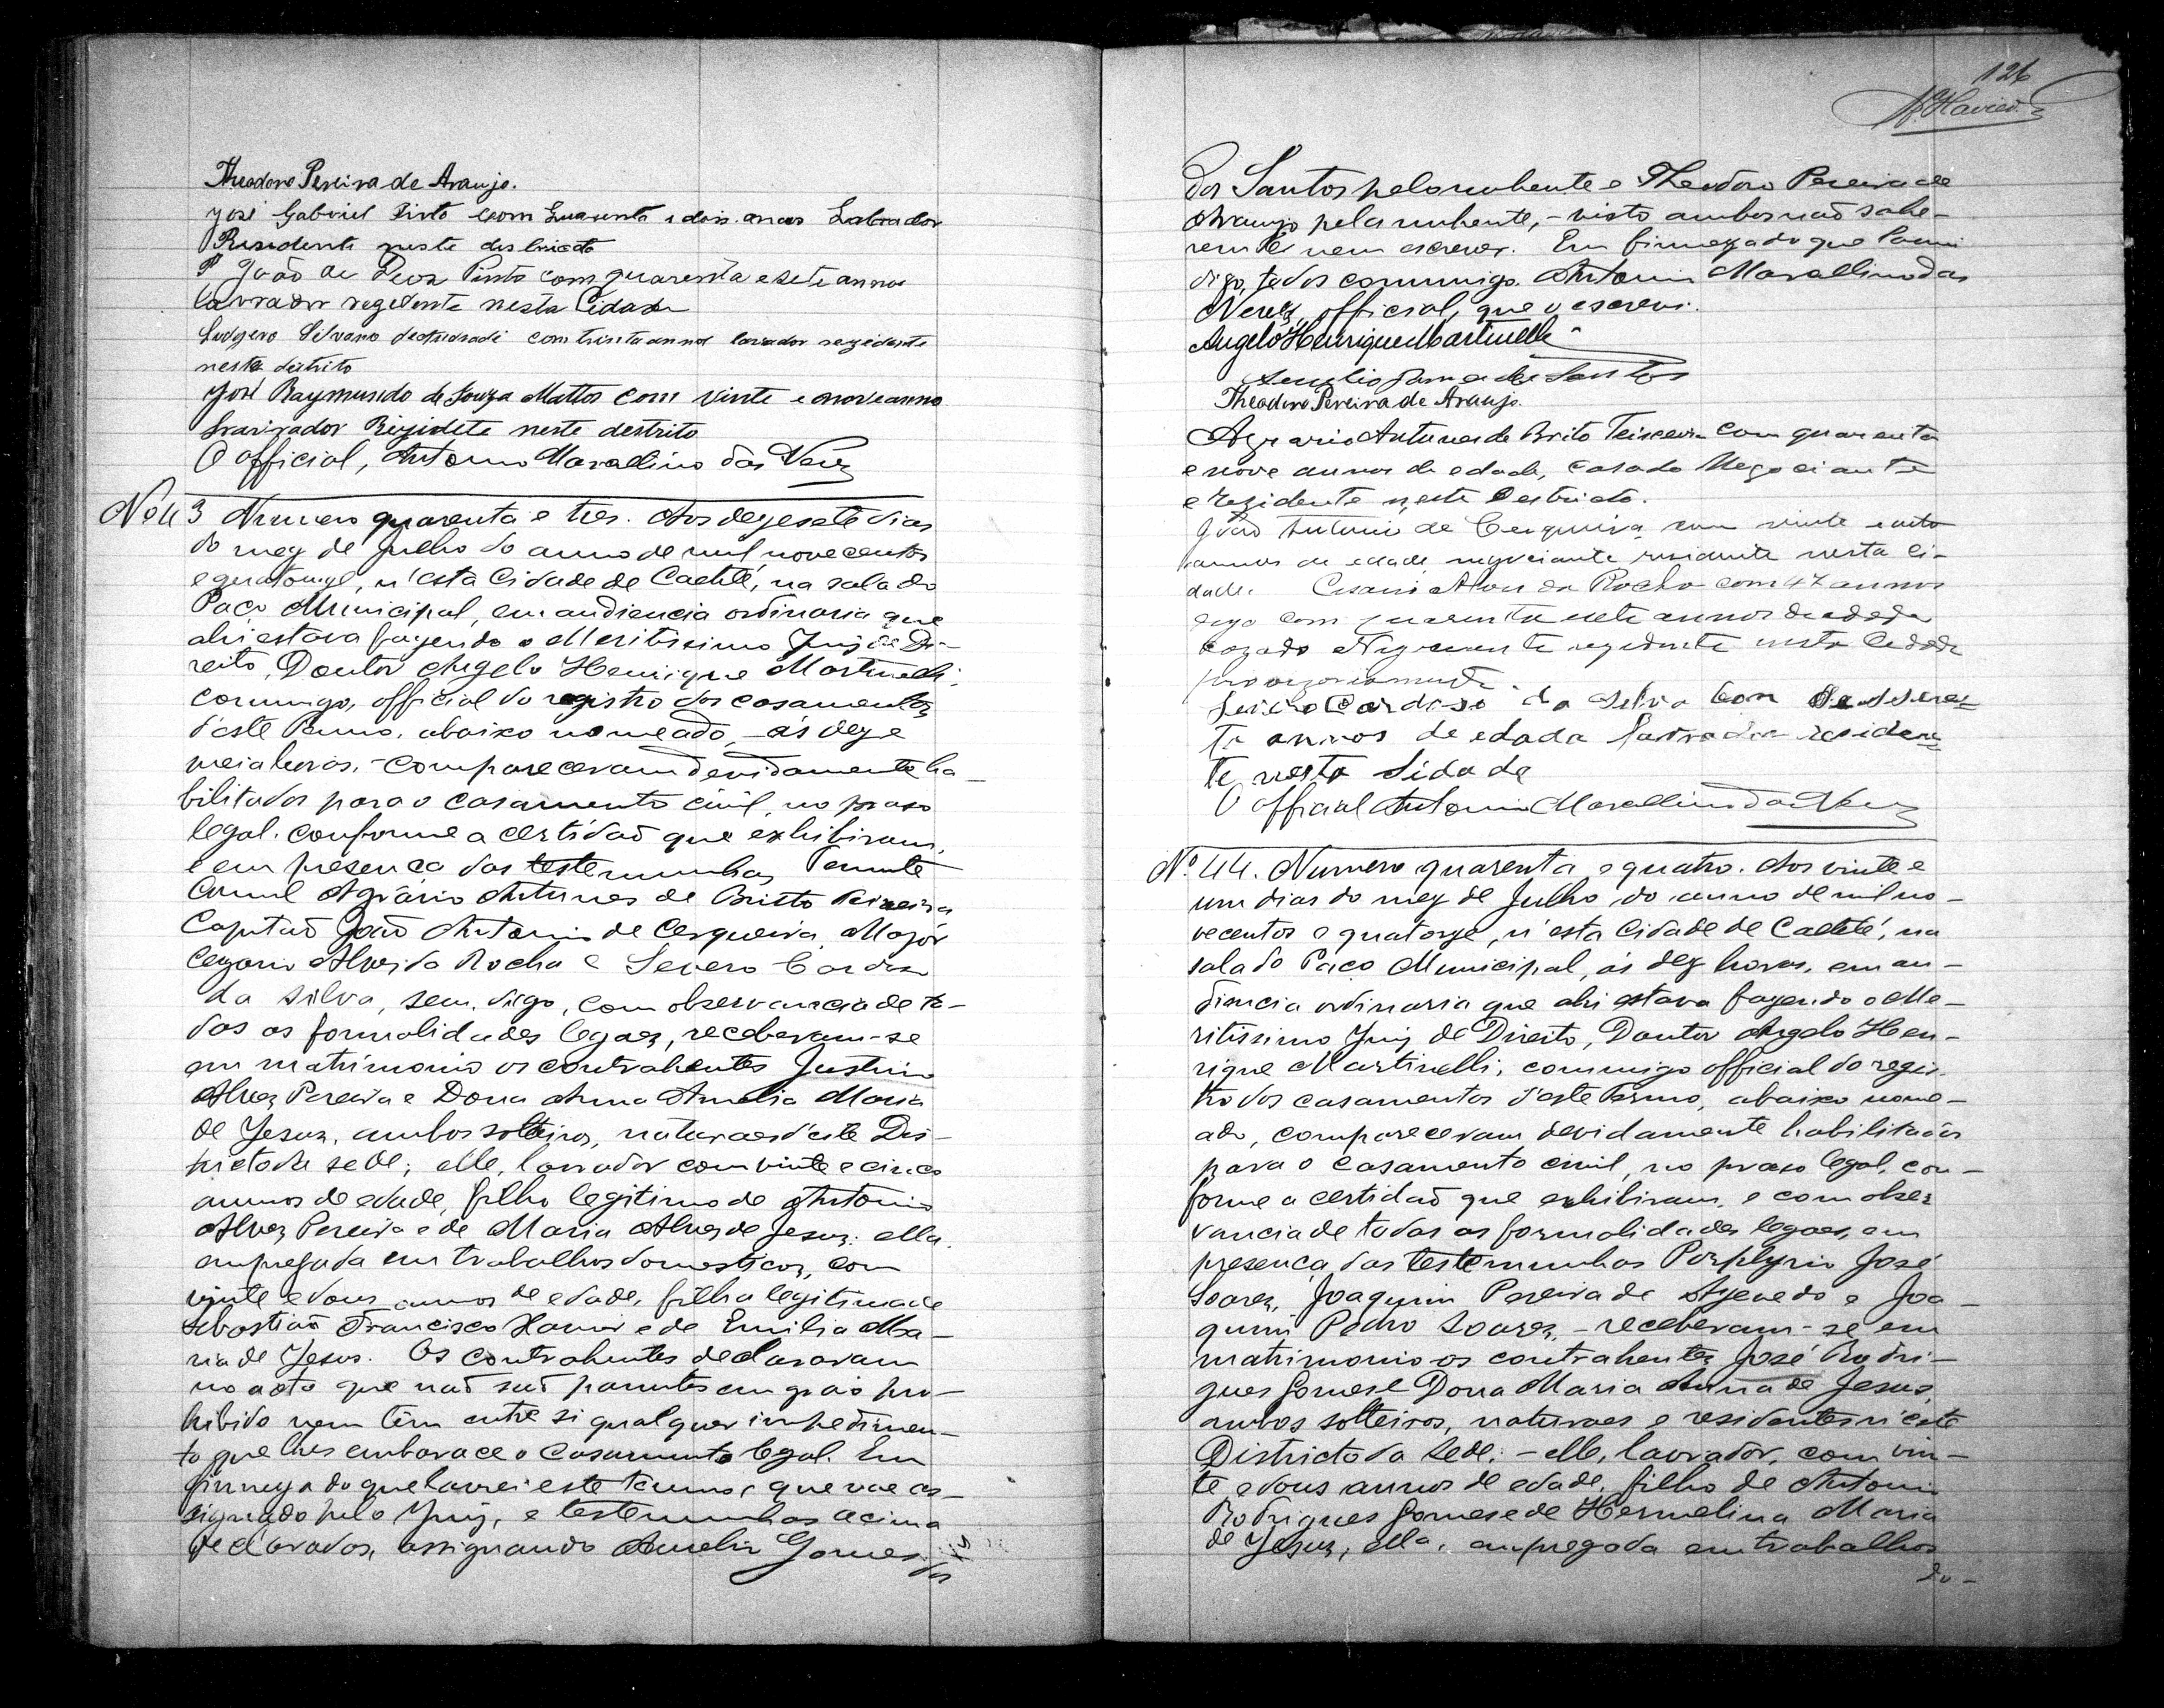 Theodoro Pereira de Araujo.
José Gabriel Pinto com Quarenta e dois annos Labrador
Residente neste destricto
João de Deos Pinto com quarenta e sete annos
lavrador regedente nesta Cidade
Ludgero Silvano de com trinta annos lavador regidente
neste distrito
José Raymundo de Souza Mattos com vinte e nove anno
Lravrador Rezidete neste destrito
O official, Antonio Marcellino das Neves
No 43 Numero quarenta e tres. Aos dezesete dias
do mez de Julho do anno de mil novecentos
e quatorze, n'esta Cidade de Caetité, na sala do
Paço Municipal, em audiencia ordinaria que
ahi estava fazendo o Meritissimo Juiz de Di-
reito, Doutor Angelo Henrique Martinelli,
commigo, official do registro dos casamentos
d'este Termo, abaixo nomeado, - ás dez e
meia horas, - compareceram devidamente ha-
bilitados para o casamento civil, no praso
legal, conforme a certidaõ que exhibiram,
e em presença das testemunhas Tenente
Coronel Agrario Antunes de Britto Teixeira
Capitaõ Joaõ Antonio de Cerqueira, Major
Cezario Alves da Rocha e Severo Cardoso
da Silva, sem, digo, com observancia de to-
das as formalidades legaes, receberam-se
em matrimonio os contrahentes Justino
Alves Pereira e Dona Anna Amelia Maria
de Jesus, ambos solteiros, naturaes d'este Dis-
tricto da sede; elle, lavrador com vinte e cinco
annos de edade, filho legitimo de Antonio
Alves Pereira e de Maria Alves de Jesus: ella,
empregada em trabalhos domesticos, com
vinte e dous annos de edade, filha legitima de
Sebastiaõ Francisco Xavier e de Emilia Ma-
ria de Jesus. Os contrahentes declararam
no acto que naõ saõ parentes em gráo pro-
hibido nem têm entre si qualquer impedimen-
to que lhes embarace o casamento legal. Em
firmeza do que lavrei este termo, que vae as-
signado pelo Juiz, e testemunhas acima
declaradas, assignando Aurelio Gomes dos
126
dos Santos pelo nubente e Theodoro Pereira de
Araujo pela nubente, - visto ambos naõ sabe-
rem ler nem escrever. Em firmeza do que
digo, todos commigo Antonio Marcellino das
Neves, official, que o escrevi.
Angelo Henrique Martinelli
Aurelio Gomes dos Santos
Theodoro Pereira de Araujo.
Agrario Antunes de Brito Teixeira com quarenta
e nove annos de edade, casado Negociante
e rezidente neste Destricto.
João Antonio de Cerqueira, com vinte e oito
annos de edade, negociante residente nesta ci-
dade. Cesario Alves da Rocha com 47 annos
digo com quarenta e sete annos de edade
cazado Negociante rezidente nesta Cidade
Severo Cardoso da Silva Com
annos de edada Lavrador residen
te nesta Sidade
O official Antonio Marcellino das Neves
No. 44. Numero quarenta e quatro. Aos vinte e
um dias do mez de Julho do anno de mil no-
vecentos e quatorze, n'esta Cidade de Caetité, na
sala do Paço Municipal, ás dez horas, em au-
diencia ordinaria que ahi estava fazendo o Me-
ritissimo Juiz de Direito, Doutor Angelo Hen-
rique Martinelli, commigo official do regis-
tro dos casamentos d'este Termo, abaixo nome-
ado, compareceram devidamente habilitados
para o casamento civil, no praso legal, con-
forme a certidaõ que exhibiram, e com obser
vancia de todas as formalidades legaes, em
presença das testemunhas Porphyrio José
Soares, Joaquim Pereira de Azevedo e Joa-
quim Pedro Soares, - receberam-se em
matrimonio os contrahentes José Rodri-
gues Gomes e Dona Maria Anna de Jesus,
ambos solteiros, naturaes e residentes n'este
Districto da Sede: - elle, lavrador, com vin-
te e dous annos de edade, filho de Antonio
Rodrigues Gomes e de Hermelina Maria
de Jesus; ella, empregada em trabalhos
do-